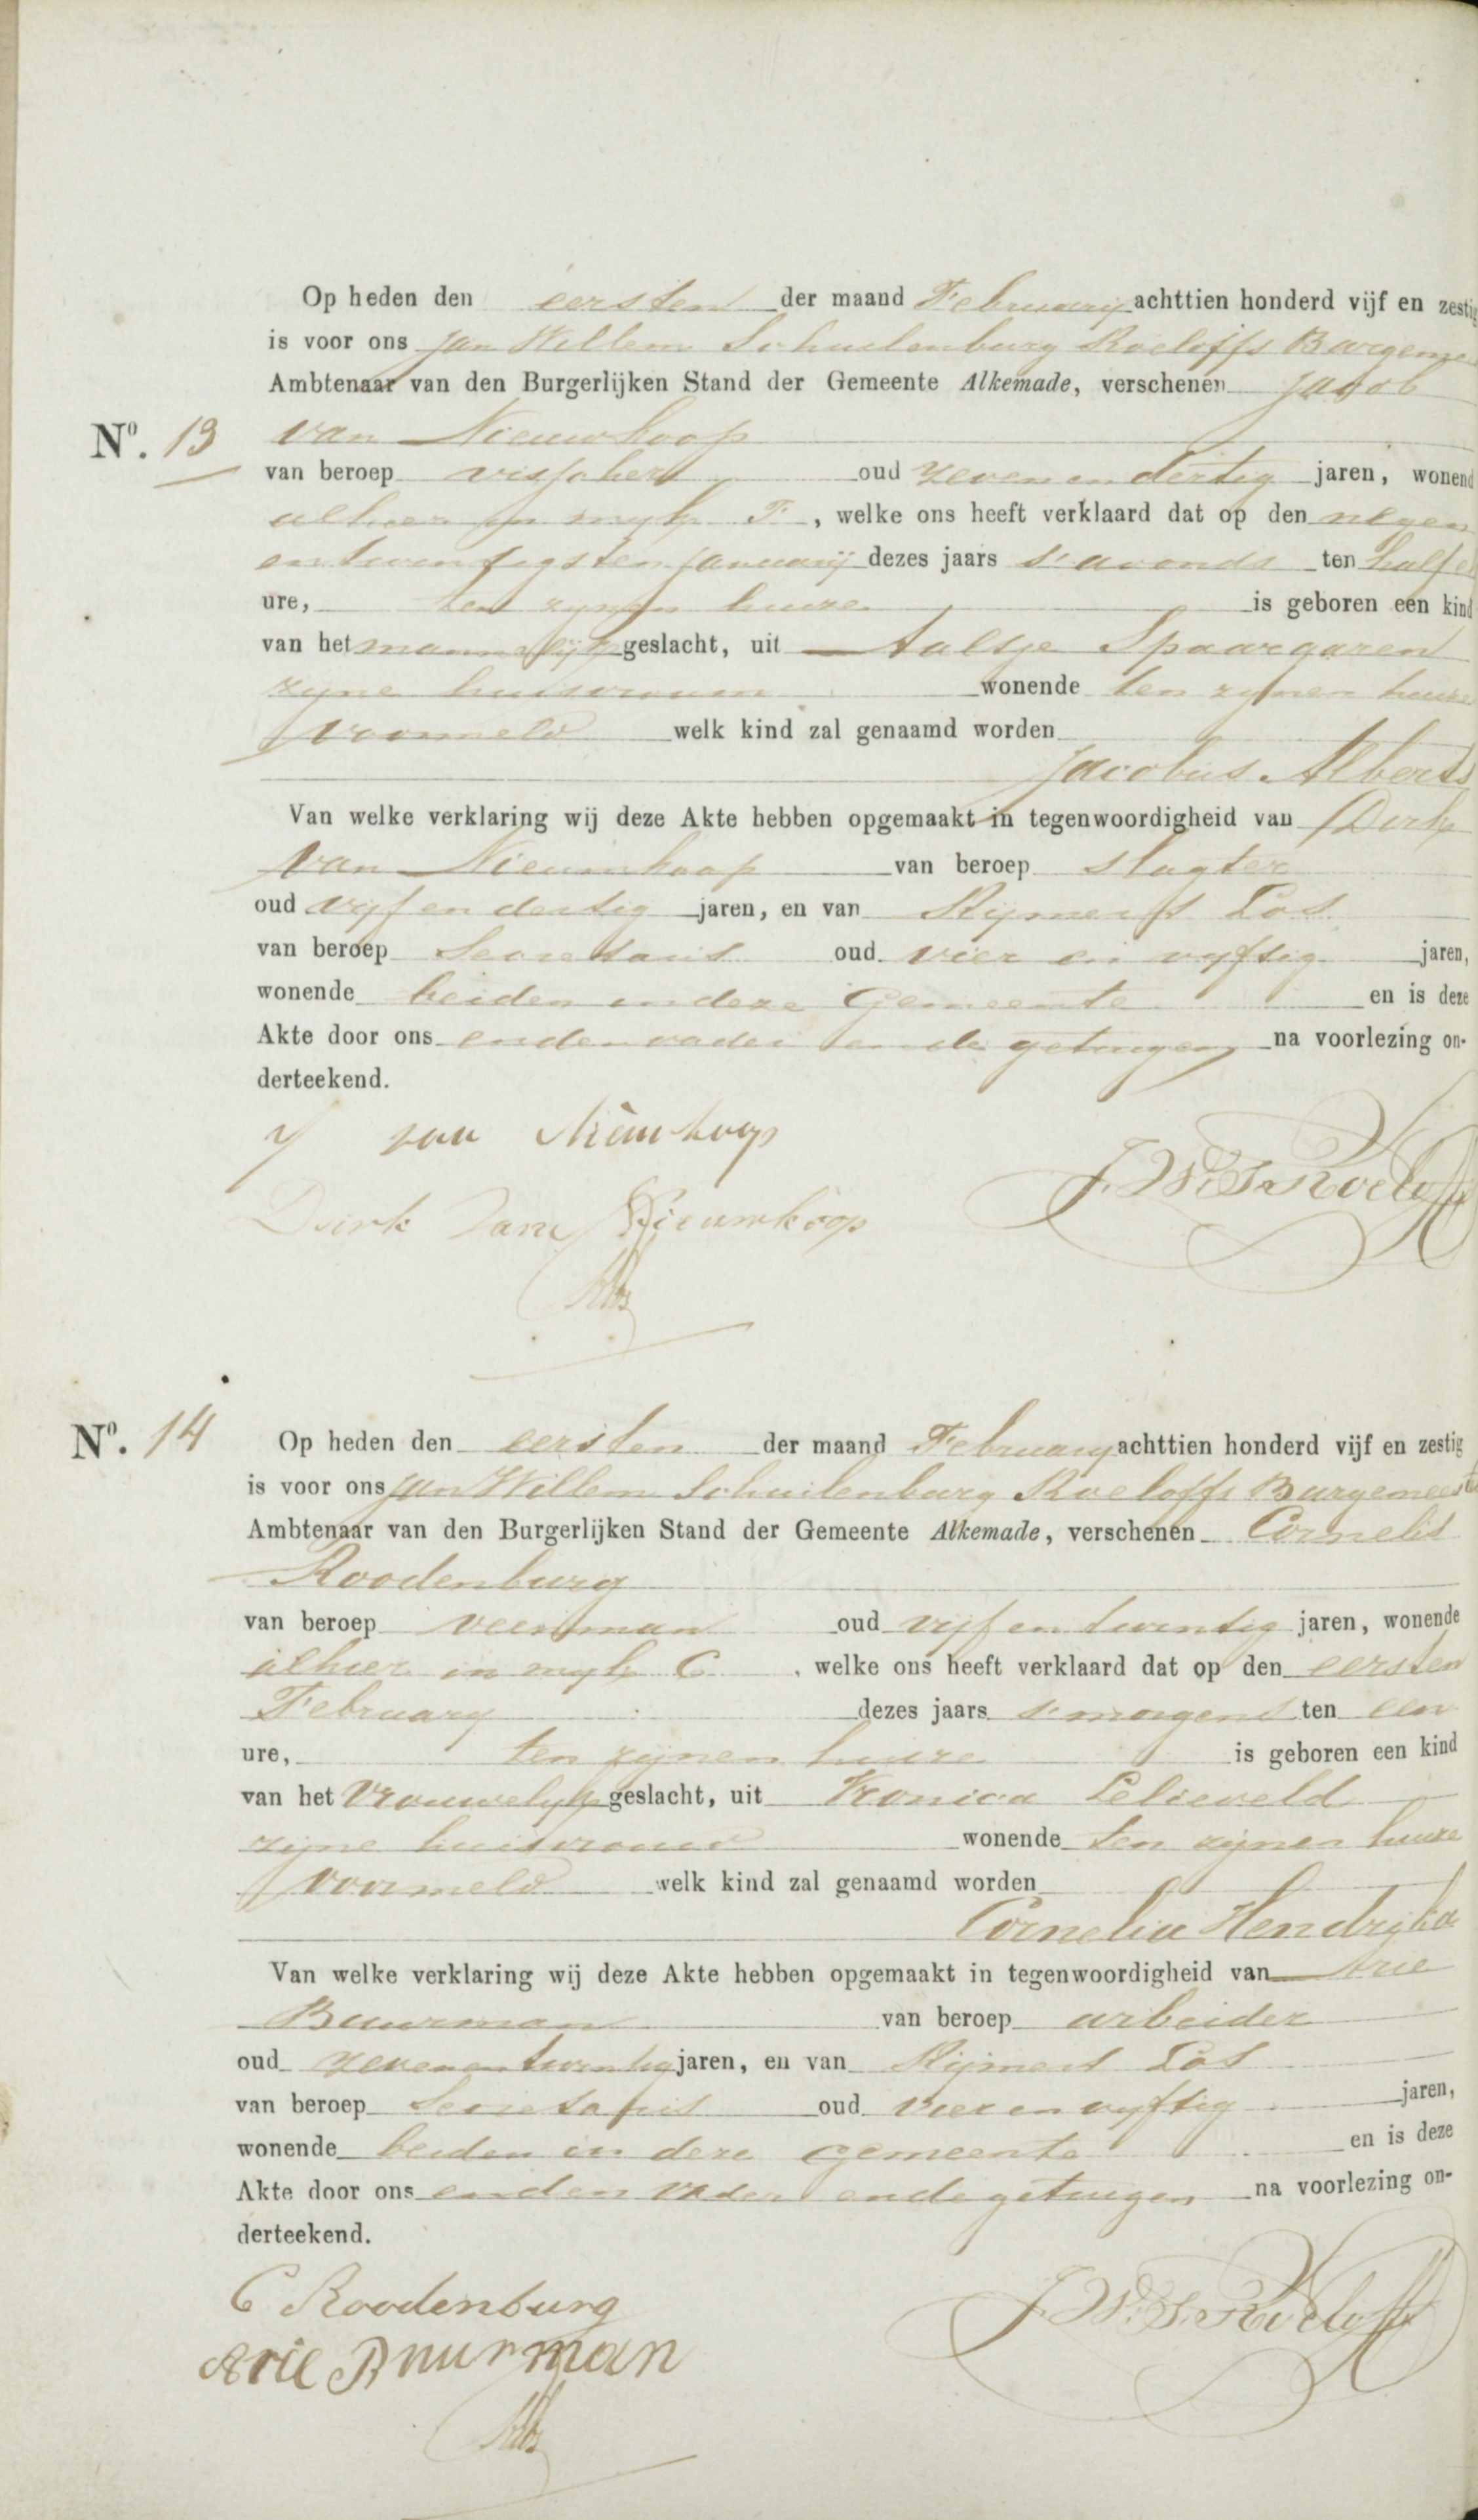 Op heden den eersten der maand February achttien honderd vijf en zestig
is voor ons Jan Willem Schuilenburg Roeloffs Burgeme
Ambtenaar van den Burgerlijken Stand der Gemeente Alkemade, verschenen Jacob
Nº. 13 van Nieuwkoop
van beroep visscher oud zeven en dertig jaren, wonend
alhier in wijk F, welke ons heeft verklaard dat op den negen
en twintigsten January dezes jaars s'avonds ten half
ure, ten zynen huize is geboren een kind
van het mannelijk geslacht, uit Aaltje Spaargaren
zyne huisvrouw wonende ten zynen huize
voormeld welk kind zal genaamd worden
Jacobus Albert
Van welke verklaring wij deze Akte hebben opgemaakt in tegenwoordigheid van Dirk
van Nieuwkoop van beroep slagter
oud vyf en dertig jaren, en van Rijmert Los
van beroep Secretaris oud vier en vyftig jaren,
wonende beiden in deze Gemeente en is deze
Akte door ons en den vader en de getuigen na voorlezing on-
derteekend.
J van Nieuwkoop
J.W.S. Roeloffs
Dirk van Nieuwkoop
RLos
Nº. 14 Op heden den eersten der maand February achttien honderd vijf en zestig
is voor ons Jan Willem Schuilenburg Roeloffs Burgemeeste
Ambtenaar van den Burgerlijken Stand der Gemeente Alkemade, verschenen Cornelis
Roodenburg
van beroep veenman oud vijf en twintig jaren, wonende
alhier in wyk C, welke ons heeft verklaard dat op den eersten
February dezes jaars s'morgens ten een
ure, ten zijnen huize is geboren een kind
van het Vrouwelyk geslacht, uit Vronica Lelieveld
zijne huisvrouw wonende ten zijnen huize
voormeld welk kind zal genaamd worden
Cornelia Hendrika
Van welke verklaring wij deze Akte hebben opgemaakt in tegenwoordigheid van Arie
Buurman van beroep arbeider
oud zeven en twintig jaren, en van Rijmert Los
van beroep Secretaris oud vier en vyftig jaren,
wonende beiden in deze gemeente en is deze
Akte door ons en den vader en de getuigen na voorlezing on-
derteekend.
C Roodenburg
J.W.S. Roeloffs
Arie Buurman
RLos